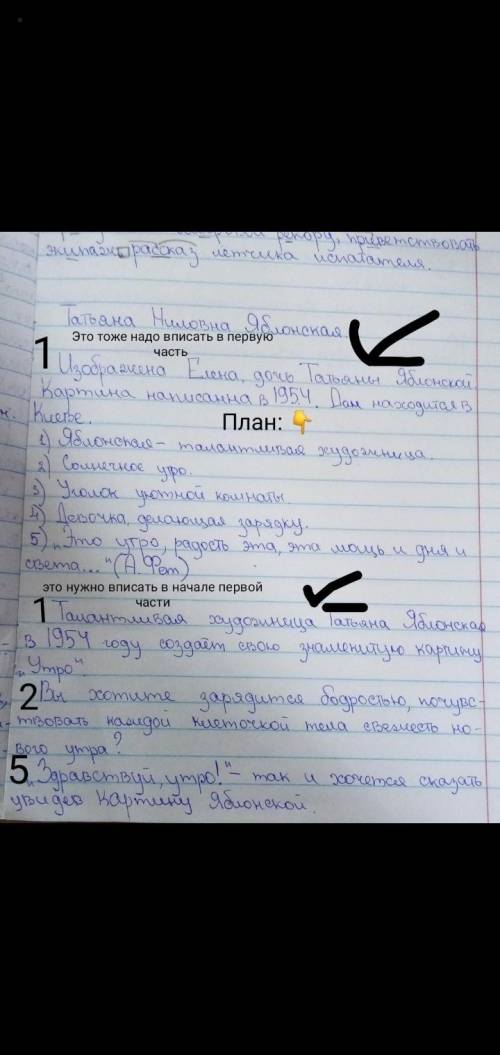 рекорду, приветствовать
экипаж, рассказ летчика испытателя.
Татьяна Ниловна Яблонская
Это тоже надо вписать в первую
часть
1 Изображена Елена, дочь Татьяны Яблонской
Картина написанна в 1954. Дом находится в
Киеве.
План: 👇
1) Яблонская- талантливая художница.
2) Солнечное утро.
3) Уголок уютной комнаты
4) Девочка, делающая зарядку.
5) „Это утро, радость эта, эта мощь и дня и
света..." (А. Фет)
это нужно вписать в начале первой
части
1 Талантливая художница Татьяна Яблонская
в 1954 году создаёт свою знаменитую картину
„Утро".
2 Вы хотите зарядится бодростью, почувс-
твовать каждой клеточкой тела свежесть но-
вого утра?
5 „Здравствуй, утро!" - так и хочется сказать
увидев картину Яблонской.